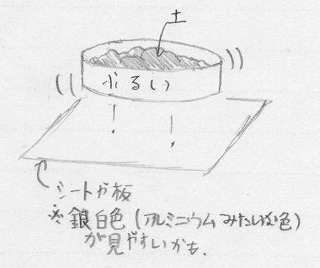 土
ふるい
シートか板
※銀白色(アルミニウムみたいな色)
が見やすいかも。